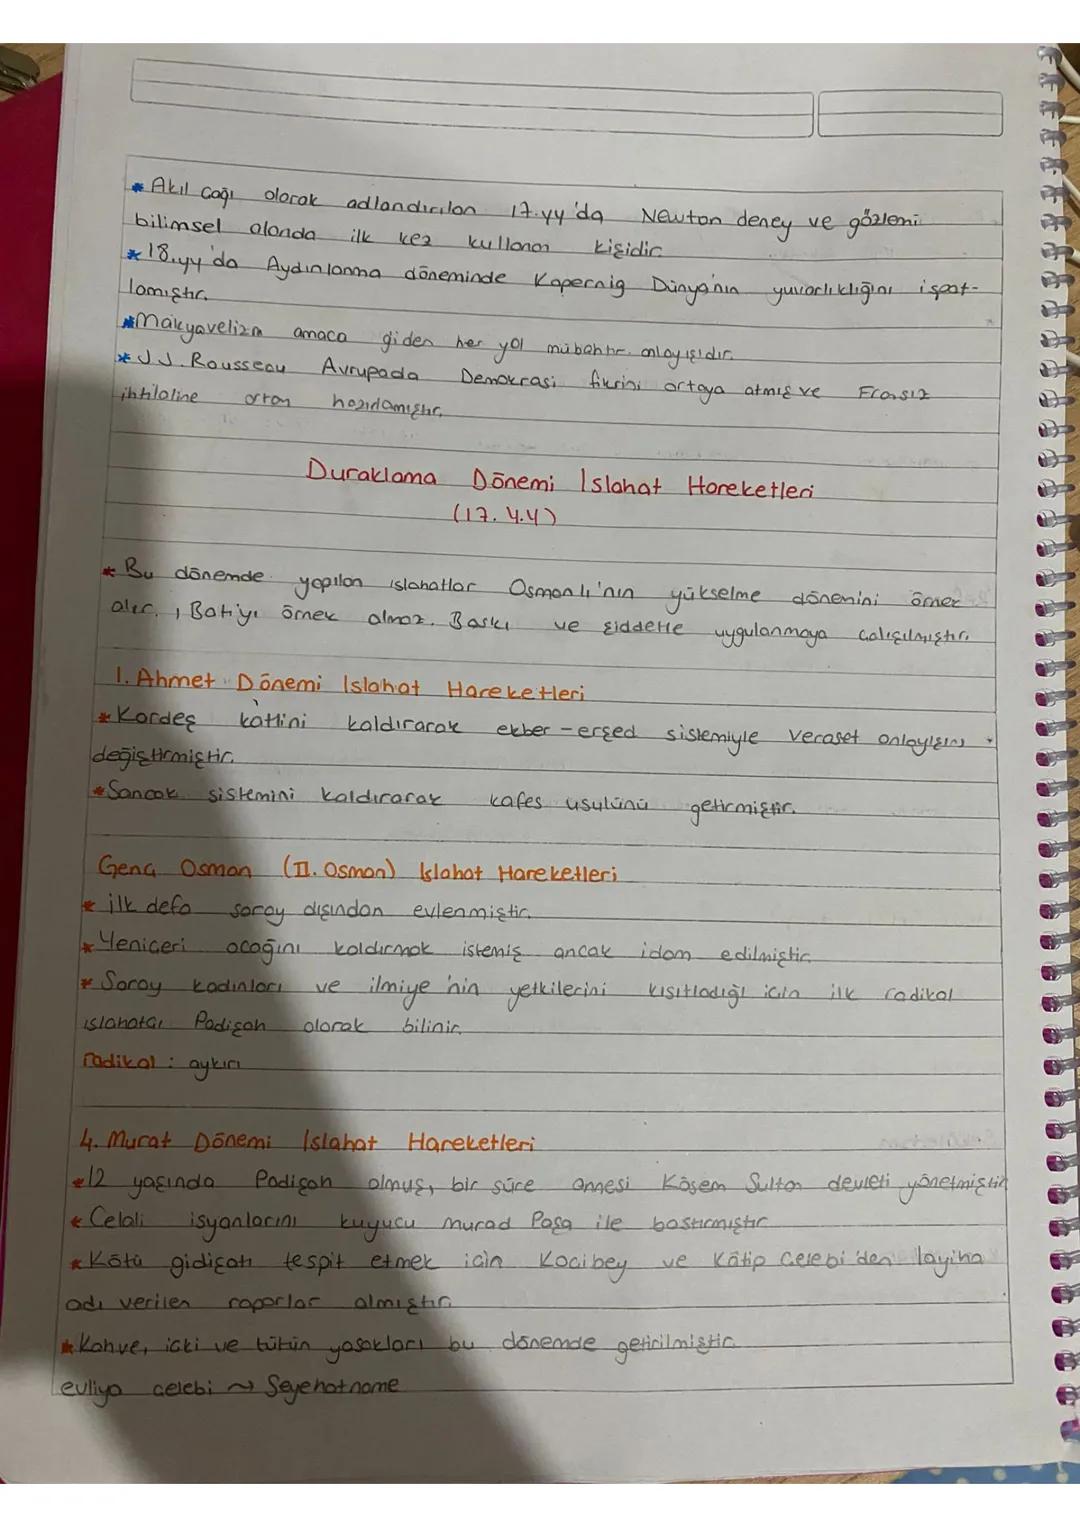 * Akıl Çağı olarak adlandırılan 17.yy'da Newton deney ve gözlemi
bilimsel alanda ilk kez kullanan kişidir.
* 18.yy'da Aydınlanma döneminde Kopernig Dünya'nın yuvarlıklığını ispat-
lamıştır.
* Makyavelizm amaca giden her yol mübahtır. anlayışıdır.
* J.J. Rousseau Avrupada Demokrasi fikrini ortaya atmış ve Fransız
ihtilaline ortam hazırlamıştır.
Duraklama Dönemi Islahat Hareketleri
(17.y.y)
* Bu dönemde yapılan ıslahatlar Osmanlı'nın yükselme dönemini örnek
alır, Batıyı örnek almaz. Baskı ve şiddetle uygulanmaya çalışılmıştır.
1. Ahmet Dönemi Islahat Hareketleri
* Kardeş katlini kaldırarak ekber-erşed sistemiyle veraset anlayışını
değiştirmiştir.
* Sancak sistemini kaldırarak kafes usulünü getirmiştir.
Genç Osman (II. Osman) Islahat Hareketleri
* ilk defa saray dışından evlenmiştir.
* Yeniçeri ocağını kaldırmak istemiş ancak idam edilmiştir.
* Saray kadınları ve ilmiye'nin yetkilerini kısıtladığı için ilk radikal
ıslahatçı Padişah olarak bilinir.
radikal : aykırı
4. Murat Dönemi Islahat Hareketleri
* 12 yaşında Padişah olmuş, bir süre annesi Kösem Sultan devleti yönetmiştir
* Celali isyanlarını kuyucu murad Paşa ile bastırmıştır
* Kötü gidişatı tespit etmek için Kocibey ve Kâtip Çelebi'den layiha
adı verilen raporlar almıştır.
* Kahve, içki ve tütün yasakları bu dönemde getirilmiştir.
evliya çelebi ~> Seyehatname